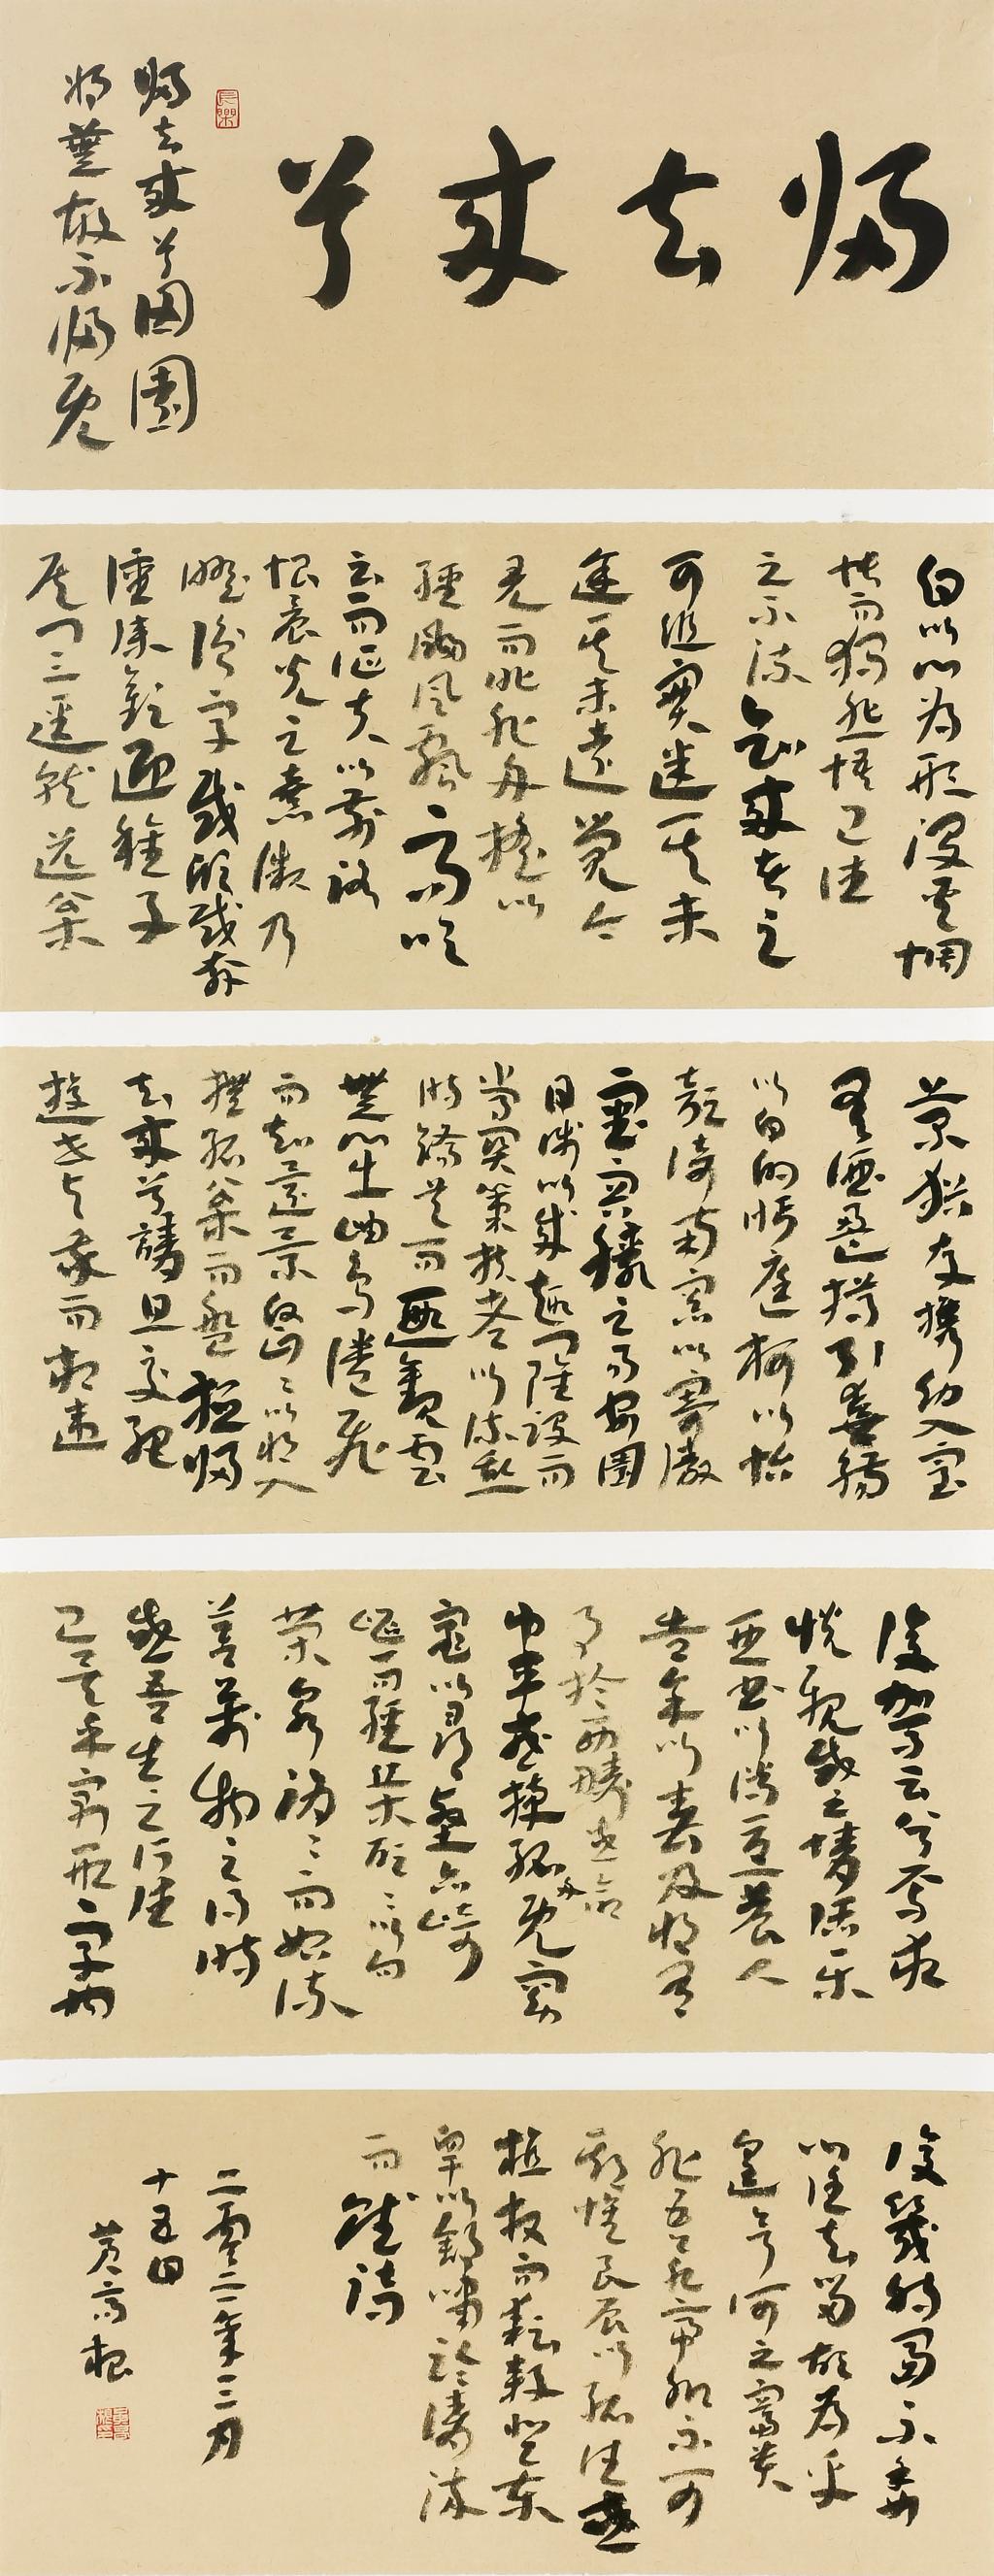 歸去來兮
長樂
歸去來兮田園
將蕪胡不歸既
自以心為形役奚惆
悵而獨悲悟已往
之不諫知來者之
可追實迷其未
途其未遠覺今
是而昨非舟搖以
輕颺風飄而吹
衣問征夫以前路
恨晨光之熹微乃
瞻衡宇載欣載奔
僮僕歡迎稚子
候門三逕就荒松
菊猶存攜幼入室
有酒盈樽引壺觴
以自酌眄庭柯以怡
顏倚南窗以寄傲
審容膝之易安園
日涉以成趣門雖設而
常關策扶老以流憩
時矯首而遐觀雲
無心出岫鳥倦飛
而知還景翳〻以將入
撫孤松而盤桓歸
去來兮請息交絕
遊世與我而相違
復駕言兮焉求
悅親戚之情話樂
琴書以消憂農人
告余以春及將有
事於西疇或命
巾車或棹孤舟既窈
窕以尋壑亦崎
嶇而經丘木欣〻以向
榮泉涓〻而始流
善萬物之得時
感吾生之行休
已矣乎寓形宇內
復幾時曷不委
心任去留胡為乎
遑兮何之富貴
非吾願帝鄉不可
期懷良辰以孤往或
植杖而耘耔登東
皋以舒嘯臨清流
而賦詩
二零二二年三月
十五日
黃高根